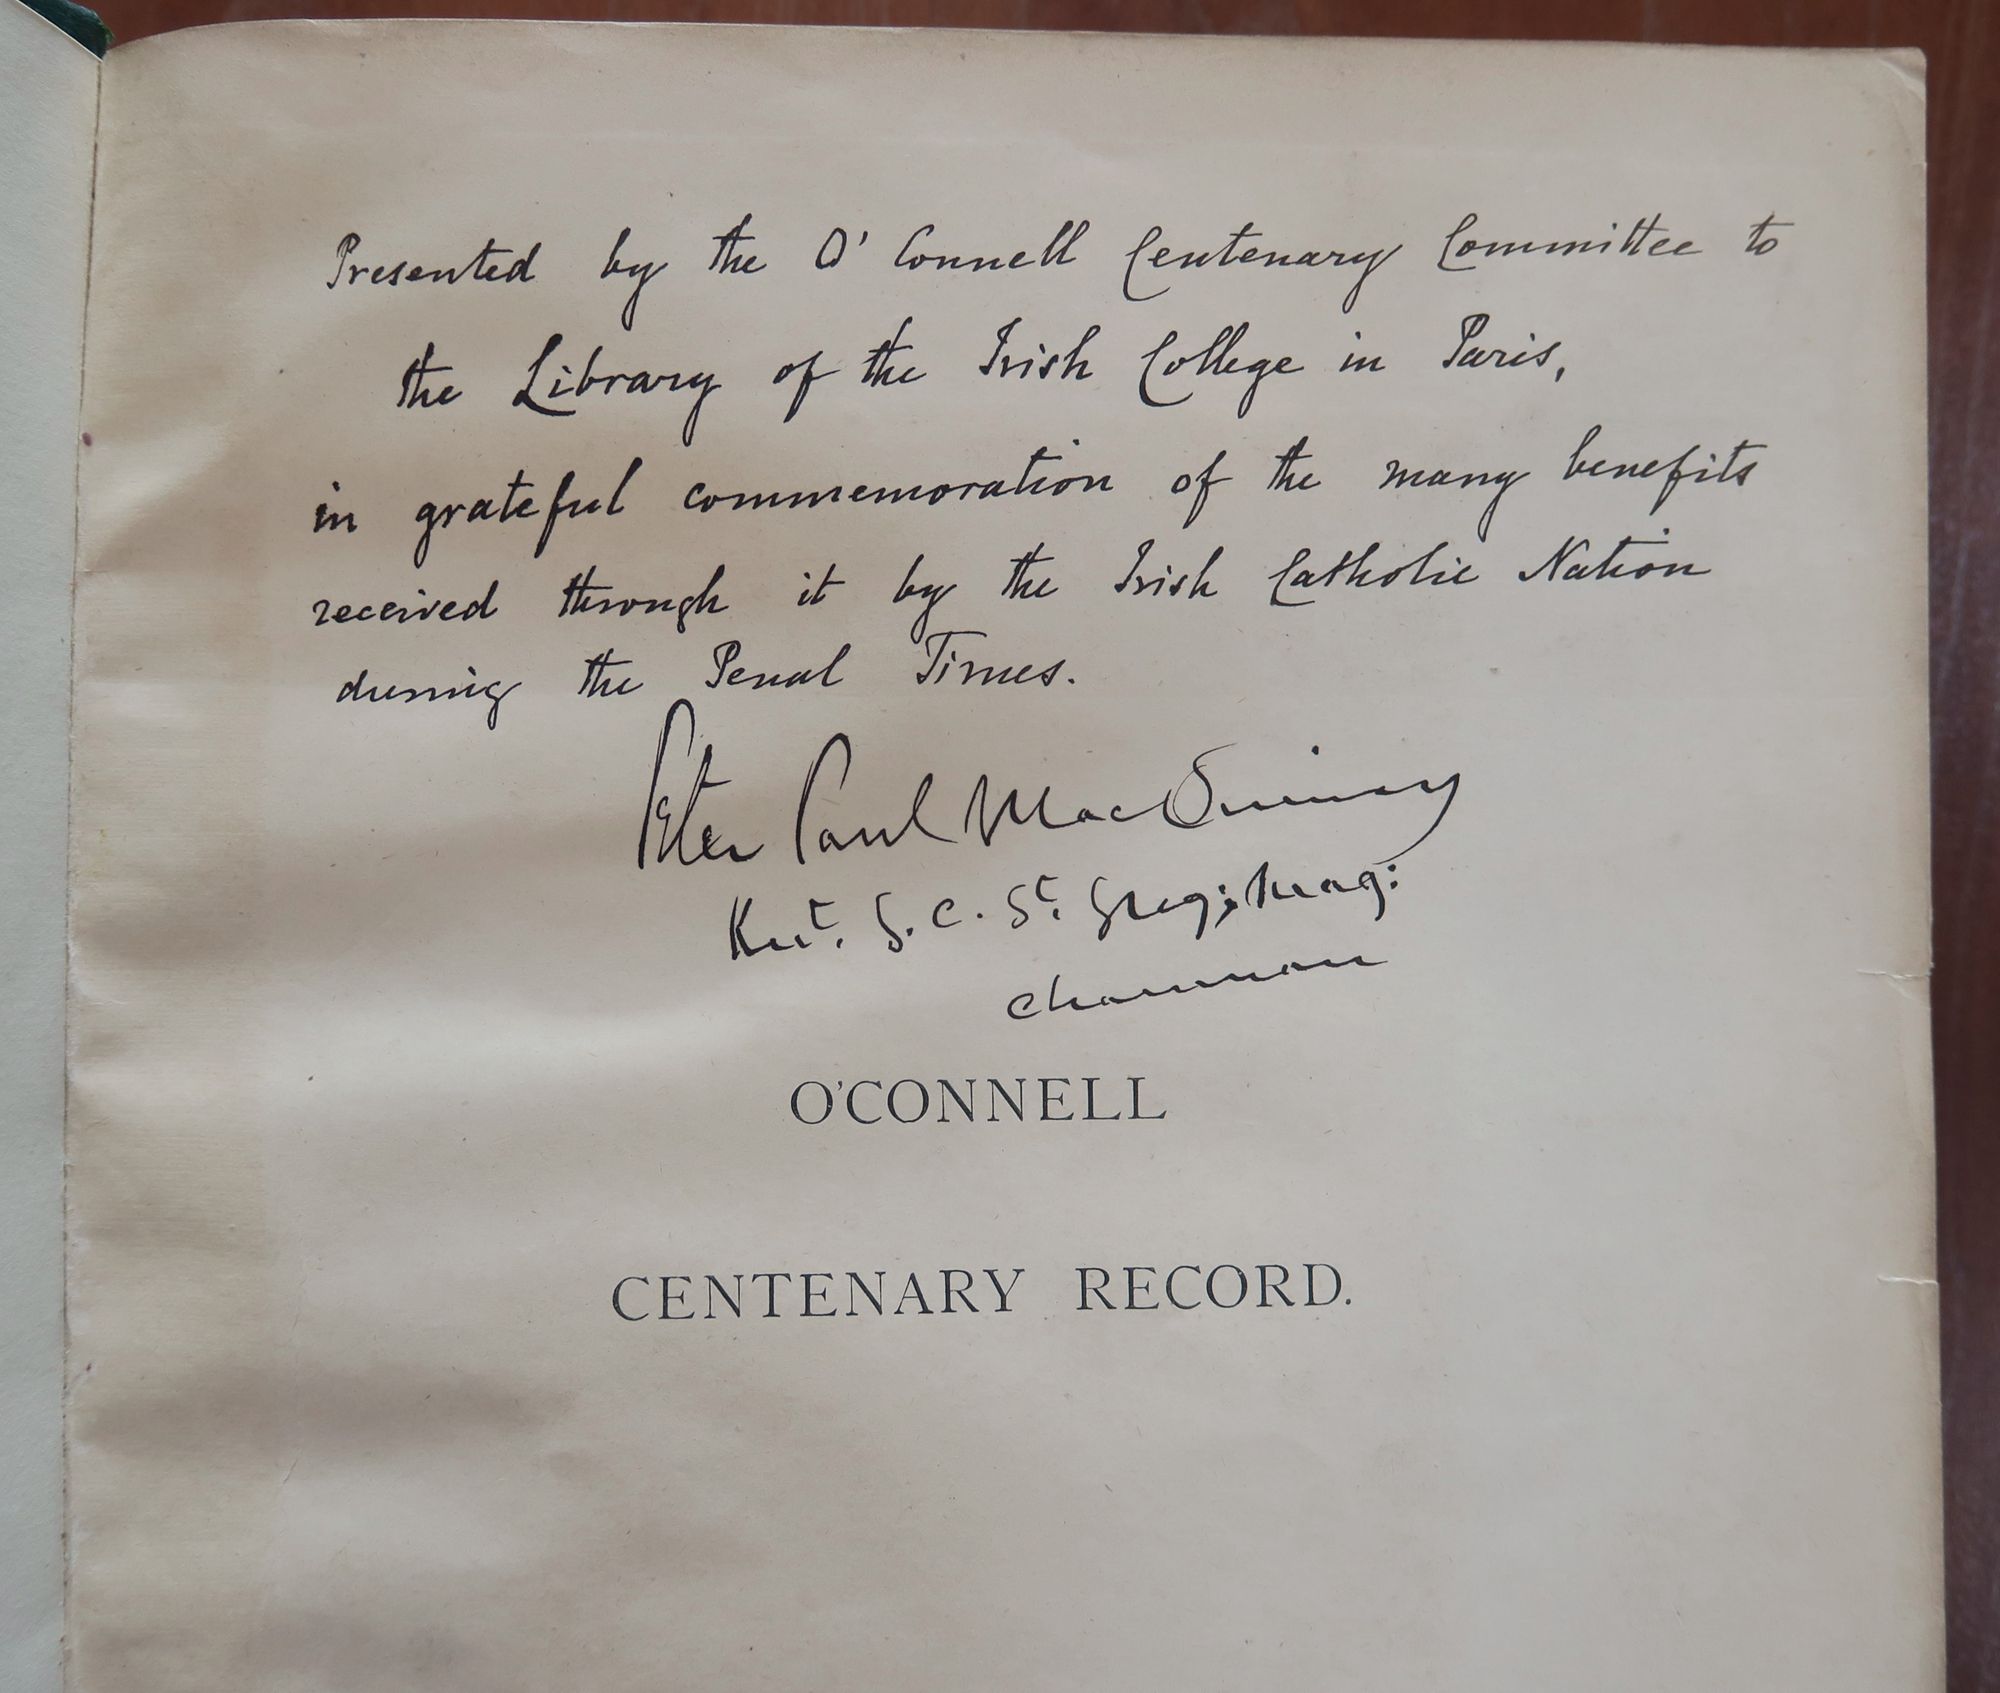 Presented by the O'Connell Centenary Committee to
the Library of the Irish College in Paris,
in grateful commemoration of the many benefits
received through it by the Irish Catholic Nation
during the Penal Times.
Peter Paul MacSwiney
Knt. G. C. St. Greg; Mag:
Chairman
O'CONNELL
CENTENARY RECORD.